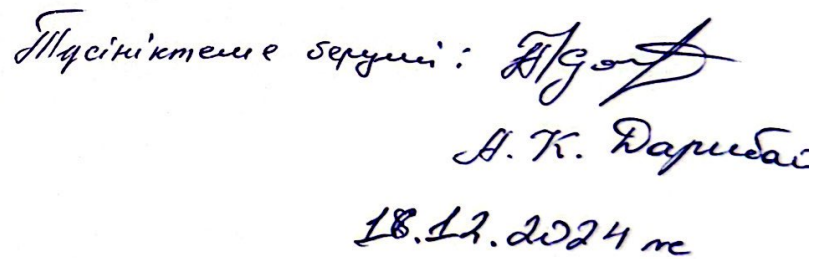 Түсініктеме беруші:
А. К. Дарибай
18.12.2024 ж